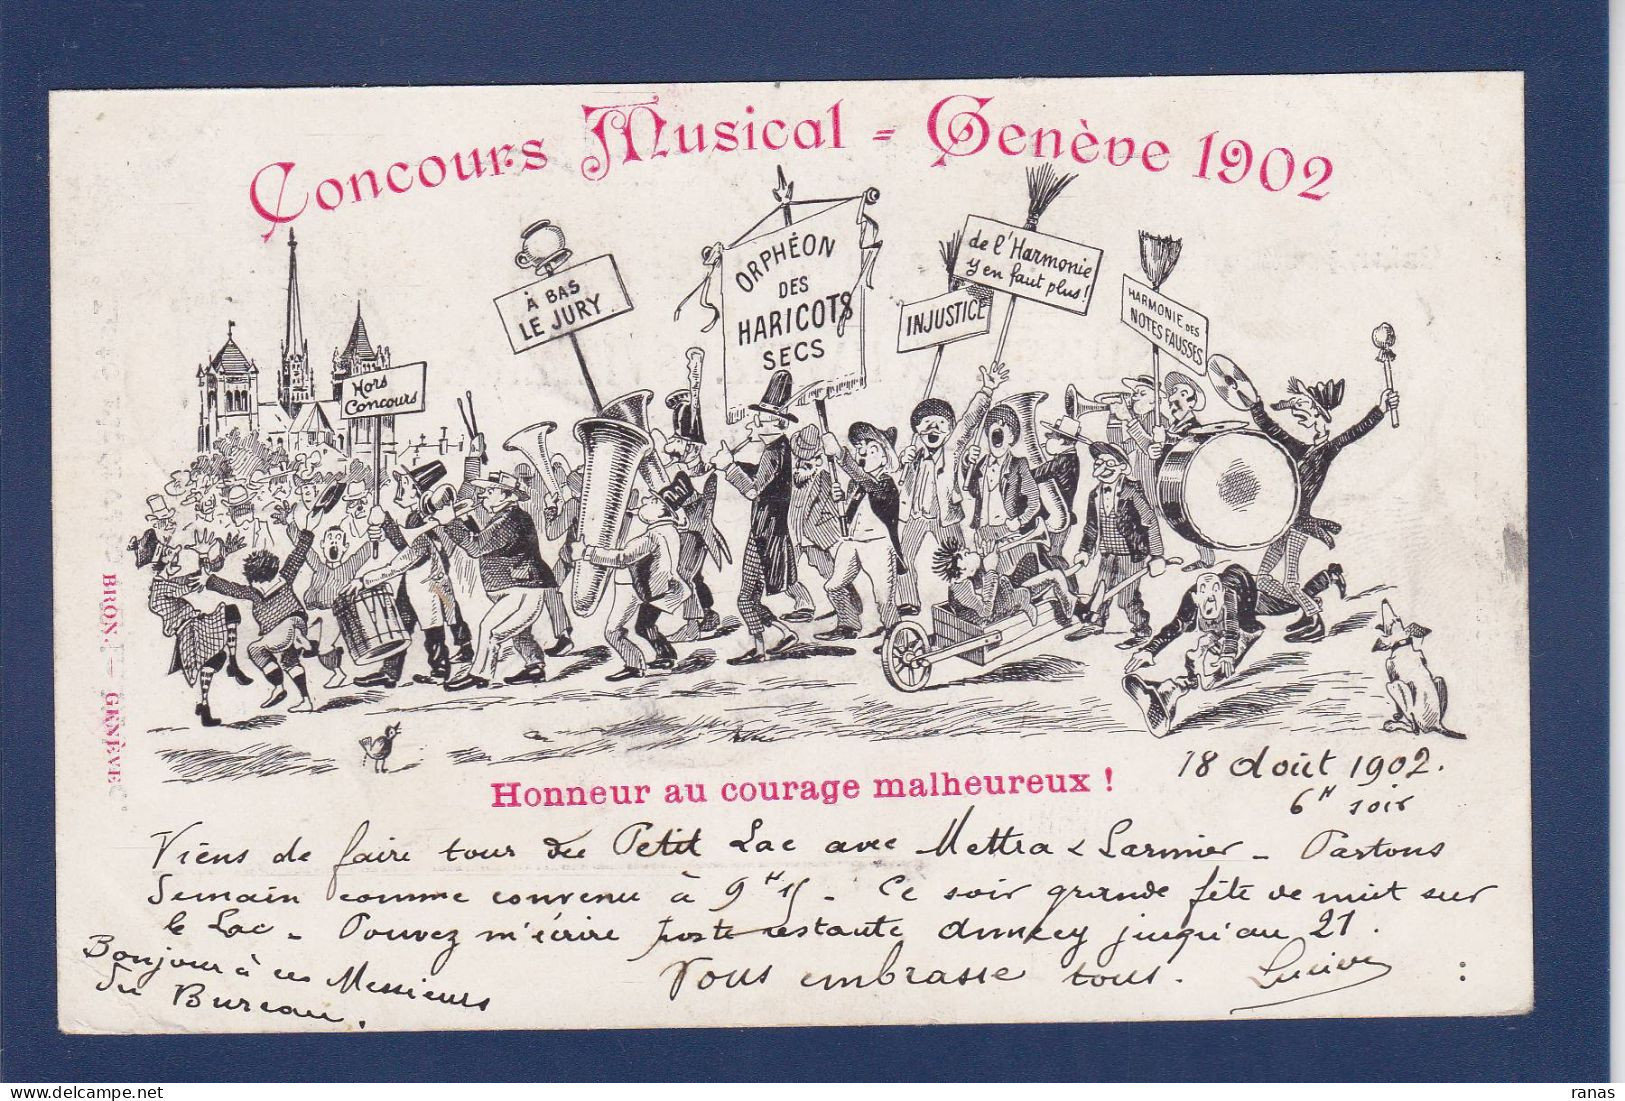 Concours Musical = Genève 1902
À BAS
LE JURY
ORPHÉON
DES
HARICOTS
SECS
de l'Harmonie
y en faut plus !
INJUSTICE
HARMONIE DES
NOTES FAUSSES
Hors
Concours
BRON. — GENÈVE
Honneur au courage malheureux !
18 Août 1902.
6 H soir
Viens de faire tour du Petit Lac avec Mettra & Larmier - Partons
demain comme convenu à 9 H 15 - Ce soir grande fête de nuit sur
le Lac - Pouvez m'écrire poste restante Annecy jusqu'au 21.
Bonjour à ces Messieurs
du Bureau.
Vous embrasse tous. Lucien
ranas